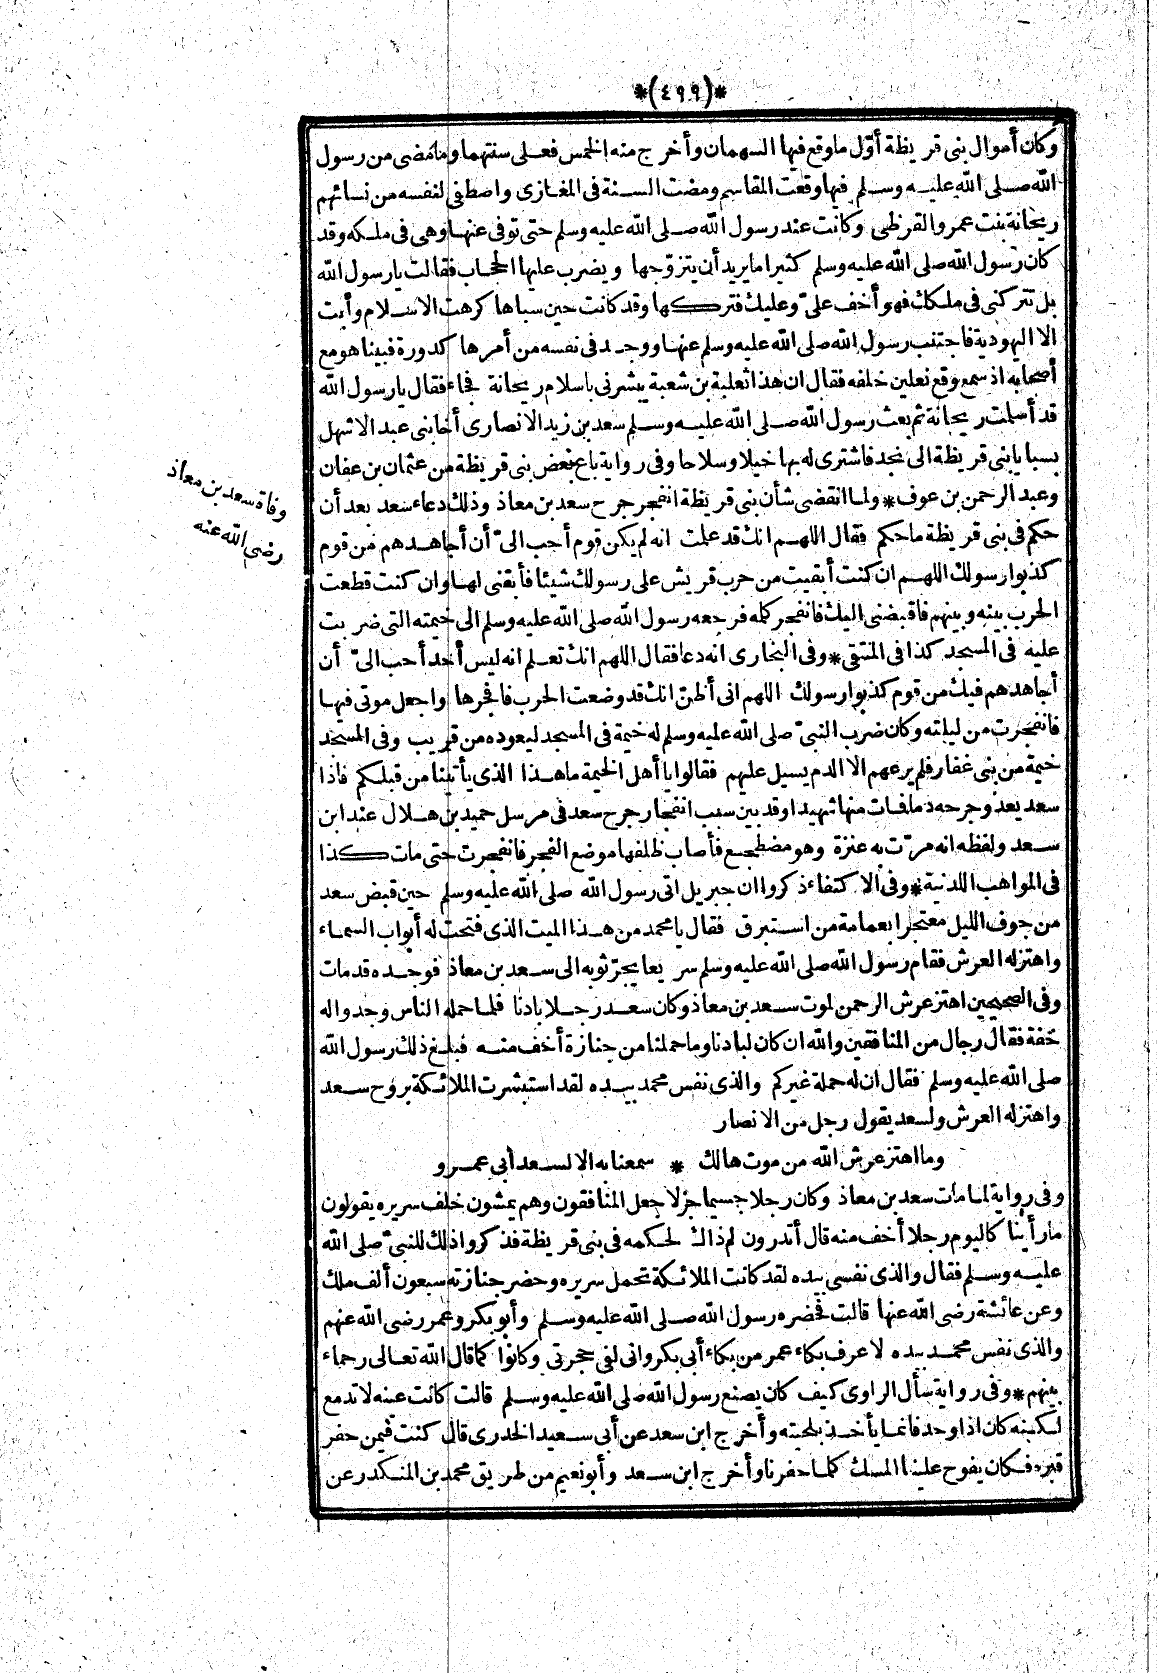 *(٤٩٩)*
وكان أموال بنى قريظة أوّل ما وقع فيها السهمان وأخرج منه الخمس فعلى سنتهما وما مضى من رسول
الله صلى الله عليه وسلم فيها وقعت المقاسم ومضت السنة فى المغازى واصطفى لنفسه من نسائهم
ريحانة بنت عمرو القرظى وكانت عند رسول الله صلى الله عليه وسلم حتى توفى عنها وهى فى ملكه وقد
كان رسول الله صلى الله عليه وسلم كثيرا ما يريد أن يتزوّجها ويضرب عليها الحجاب فقالت يا رسول الله
بل تتركنى فى ملكك فهو أخف علىّ وعليك فتركها وقد كانت حين سباها كرهت الاسلام وأبت
الا اليهودية فاجتنب رسول الله صلى الله عليه وسلم عنها ووجد فى نفسه من أمرها كدورة فبينا هو مع
أصحابه اذ سمع وقع نعلين خلفه فقال ان هذا ثعلبة بن شعبة يبشرنى باسلام ريحانة فجاء فقال يا رسول الله
قد أسلمت ريحانة ثم بعث رسول الله صلى الله عليه وسلم سعد بن زيد الانصارى أخا بنى عبد الاشهل
بسبايا بنى قريظة الى نجد فاشترى له بها خيلا وسلاحا وفى رواية باع بعض بنى قريظة من عثمان بن عفان
وعبد الرحمن بن عوف * ولما انقضى شأن بنى قريظة انفجر جرح سعد بن معاذ وذلك دعاء سعد بعد أن
حكم فى بنى قريظة ما حكم فقال اللهم انك قد علمت انه لم يكن قوم أحب الىّ أن أجاهدهم من قوم
كذبوا رسولك اللهم ان كنت أبقيت من حرب قريش على رسولك شيئا فأبقنى لها وان كنت قطعت
الحرب بينه وبينهم فاقبضنى اليك فانفجر كلمه فرجعه رسول الله صلى الله عليه وسلم الى خيمته التى ضربت
عليه فى المسجد كذا فى المنتقى * وفى البخارى انه دعا فقال اللهم انك تعلم انه ليس أحد أحب الىّ أن
أجاهدهم فيك من قوم كذبوا رسولك اللهم انى أظنّ انك قد وضعت الحرب فافجرها واجعل موتى فيها
فانفجرت من ليلته وكان ضرب النبىّ صلى الله عليه وسلم له خيمة فى المسجد ليعوده من قريب وفى المسجد
خيمة من بنى غفار فلم يرعهم الا الدم يسيل عليهم فقالوا يا أهل الخيمة ما هذا الذى يأتينا من قبلكم فاذا
سعد يعدو جرحه دما فمات منها شهيدا وقد بين سبب انفجار جرح سعد فى مرسل حميد بن هلال عند ابن
سعد ولفظه انه مرّت به عنزة وهو مضطجع فأصاب ظلفها موضع الفجر فانفجرت حتى مات كذا
فى المواهب اللدنية * وفى الاكتفاء ذكروا ان جبريل اتى رسول الله صلى الله عليه وسلم حين قبض سعد
من جوف الليل معتجرا بعمامة من استبرق فقال يا محمد من هذا الميت الذى فتحت له أبواب السماء
واهتز له العرش فقام رسول الله صلى الله عليه وسلم سريعا يجرّ ثوبه الى سعد بن معاذ فوجده قد مات
وفى الصحيحين اهتز عرش الرحمن لموت سعد بن معاذ وكان سعد رجلا بادنا فلما حمله الناس وجدوا له
خفة فقال رجال من المنافقين والله ان كان لبادنا وما حملنا من جنازة أخف منه فبلغ ذلك رسول الله
صلى الله عليه وسلم فقال ان له حملة غيركم والذى نفس محمد بيده لقد استبشرت الملائكة بروح سعد
واهتز له العرش ولسعد يقول رجل من الانصار
وما اهتز عرش الله من موت هالك * سمعنا به الا لسعد أبى عمرو
وفى رواية لما مات سعد بن معاذ وكان رجلا جسيما جزلا جعل المنافقون وهم يمشون خلف سريره يقولون
ما رأينا كاليوم رجلا أخف منه قال أتدرون لم ذاك لحكمه فى بنى قريظة فذكروا ذلك للنبىّ صلى الله
عليه وسلم فقال والذى نفسى بيده لقد كانت الملائكة تحمل سريره وحضر جنازته سبعون ألف ملك
وعن عائشة رضى الله عنها قالت فحضره رسول الله صلى الله عليه وسلم وأبو بكر وعمر رضى الله عنهم
والذى نفس محمد بيده لاعرف بكاء عمر من بكاء أبى بكر وانى لفى حجرتى وكانوا كما قال الله تعالى رحماء
بينهم * وفى رواية سأل الراوى كيف كان يصنع رسول الله صلى الله عليه وسلم قالت كانت عينه لا تدمع
لكنه كان اذا وجد فانما يأخذ بلحيته وأخرج ابن سعد عن أبى سعيد الخدرى قال كنت فيمن حفر
قبره فكان يفوح علينا المسك كلما حفرنا وأخرج ابن سعد وأبو نعيم من طريق محمد بن المنكدر عن
وفاة سعد بن معاذ
رضى الله عنه